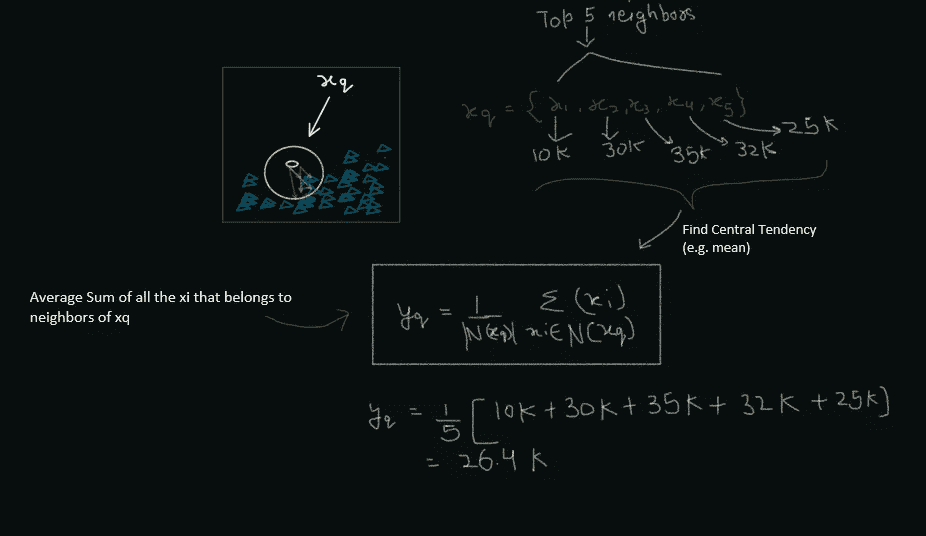 Top 5 neighbors
xq
xq = { x1, x2, x3, x4, x5 }
10K 30K 35K 32K 25K
Find Central Tendency
(e.g. mean)
Average Sum of all the xi that belongs to
neighbors of xq
yq = 1/|N(xq)| Σ (xi)
xi ∈ N(xq)
yq = 1/5 [10K + 30K + 35K + 32K + 25K]
= 26.4 K